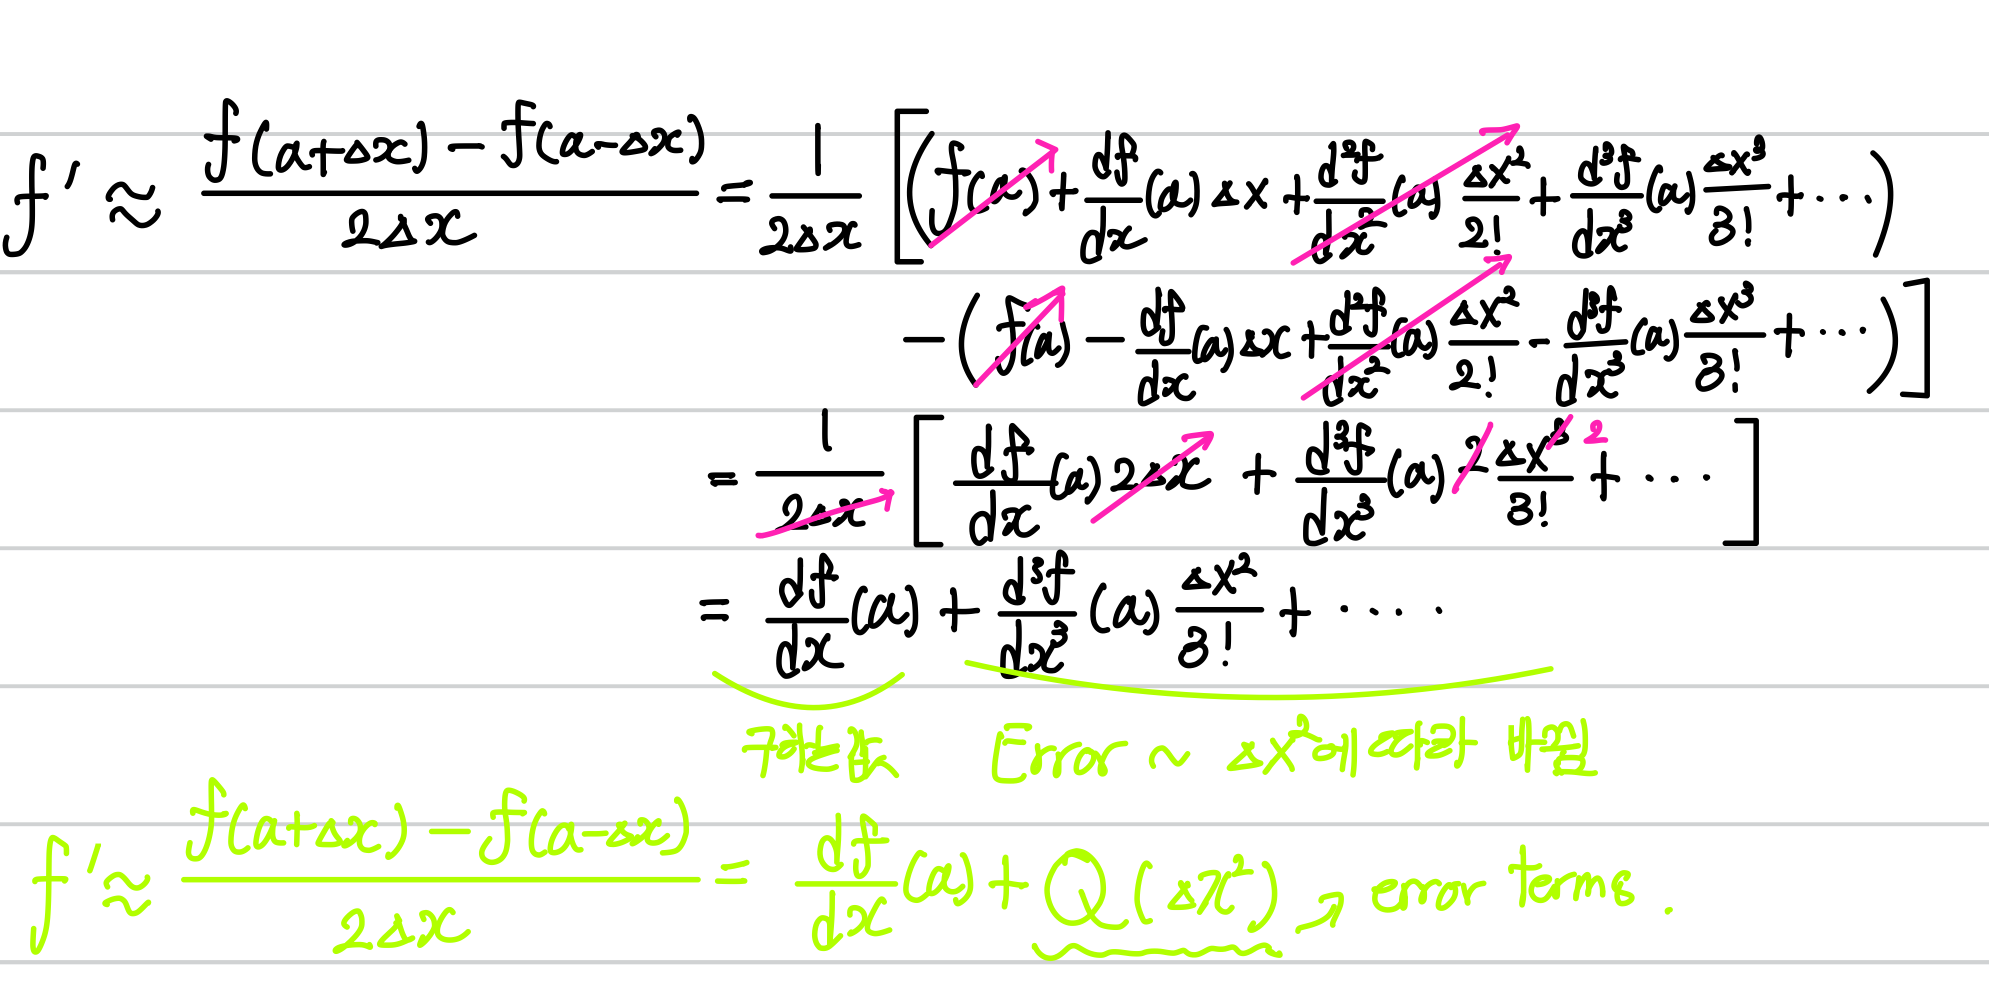 f' ≈ \frac{f(a+Δx) - f(a-Δx)}{2Δx} = \frac{1}{2Δx} [ ( f(a) + \frac{df}{dx}(a) Δx + \frac{d^2f}{dx^2}(a) \frac{Δx^2}{2!} + \frac{d^3f}{dx^3}(a) \frac{Δx^3}{3!} + ... )
- ( f(a) - \frac{df}{dx}(a) Δx + \frac{d^2f}{dx^2}(a) \frac{Δx^2}{2!} - \frac{d^3f}{dx^3}(a) \frac{Δx^3}{3!} + ... ) ]
= \frac{1}{2Δx} [ \frac{df}{dx}(a) 2Δx + \frac{d^3f}{dx^3}(a) 2 \frac{Δx^3}{3!} 2 + ... ]
= \frac{df}{dx}(a) + \frac{d^3f}{dx^3}(a) \frac{Δx^2}{3!} + ....
구하는값 Error ~ Δx^2에 따라 바뀜
f' ≈ \frac{f(a+Δx) - f(a-Δx)}{2Δx} = \frac{df}{dx}(a) + Q(Δx^2) → error terms.